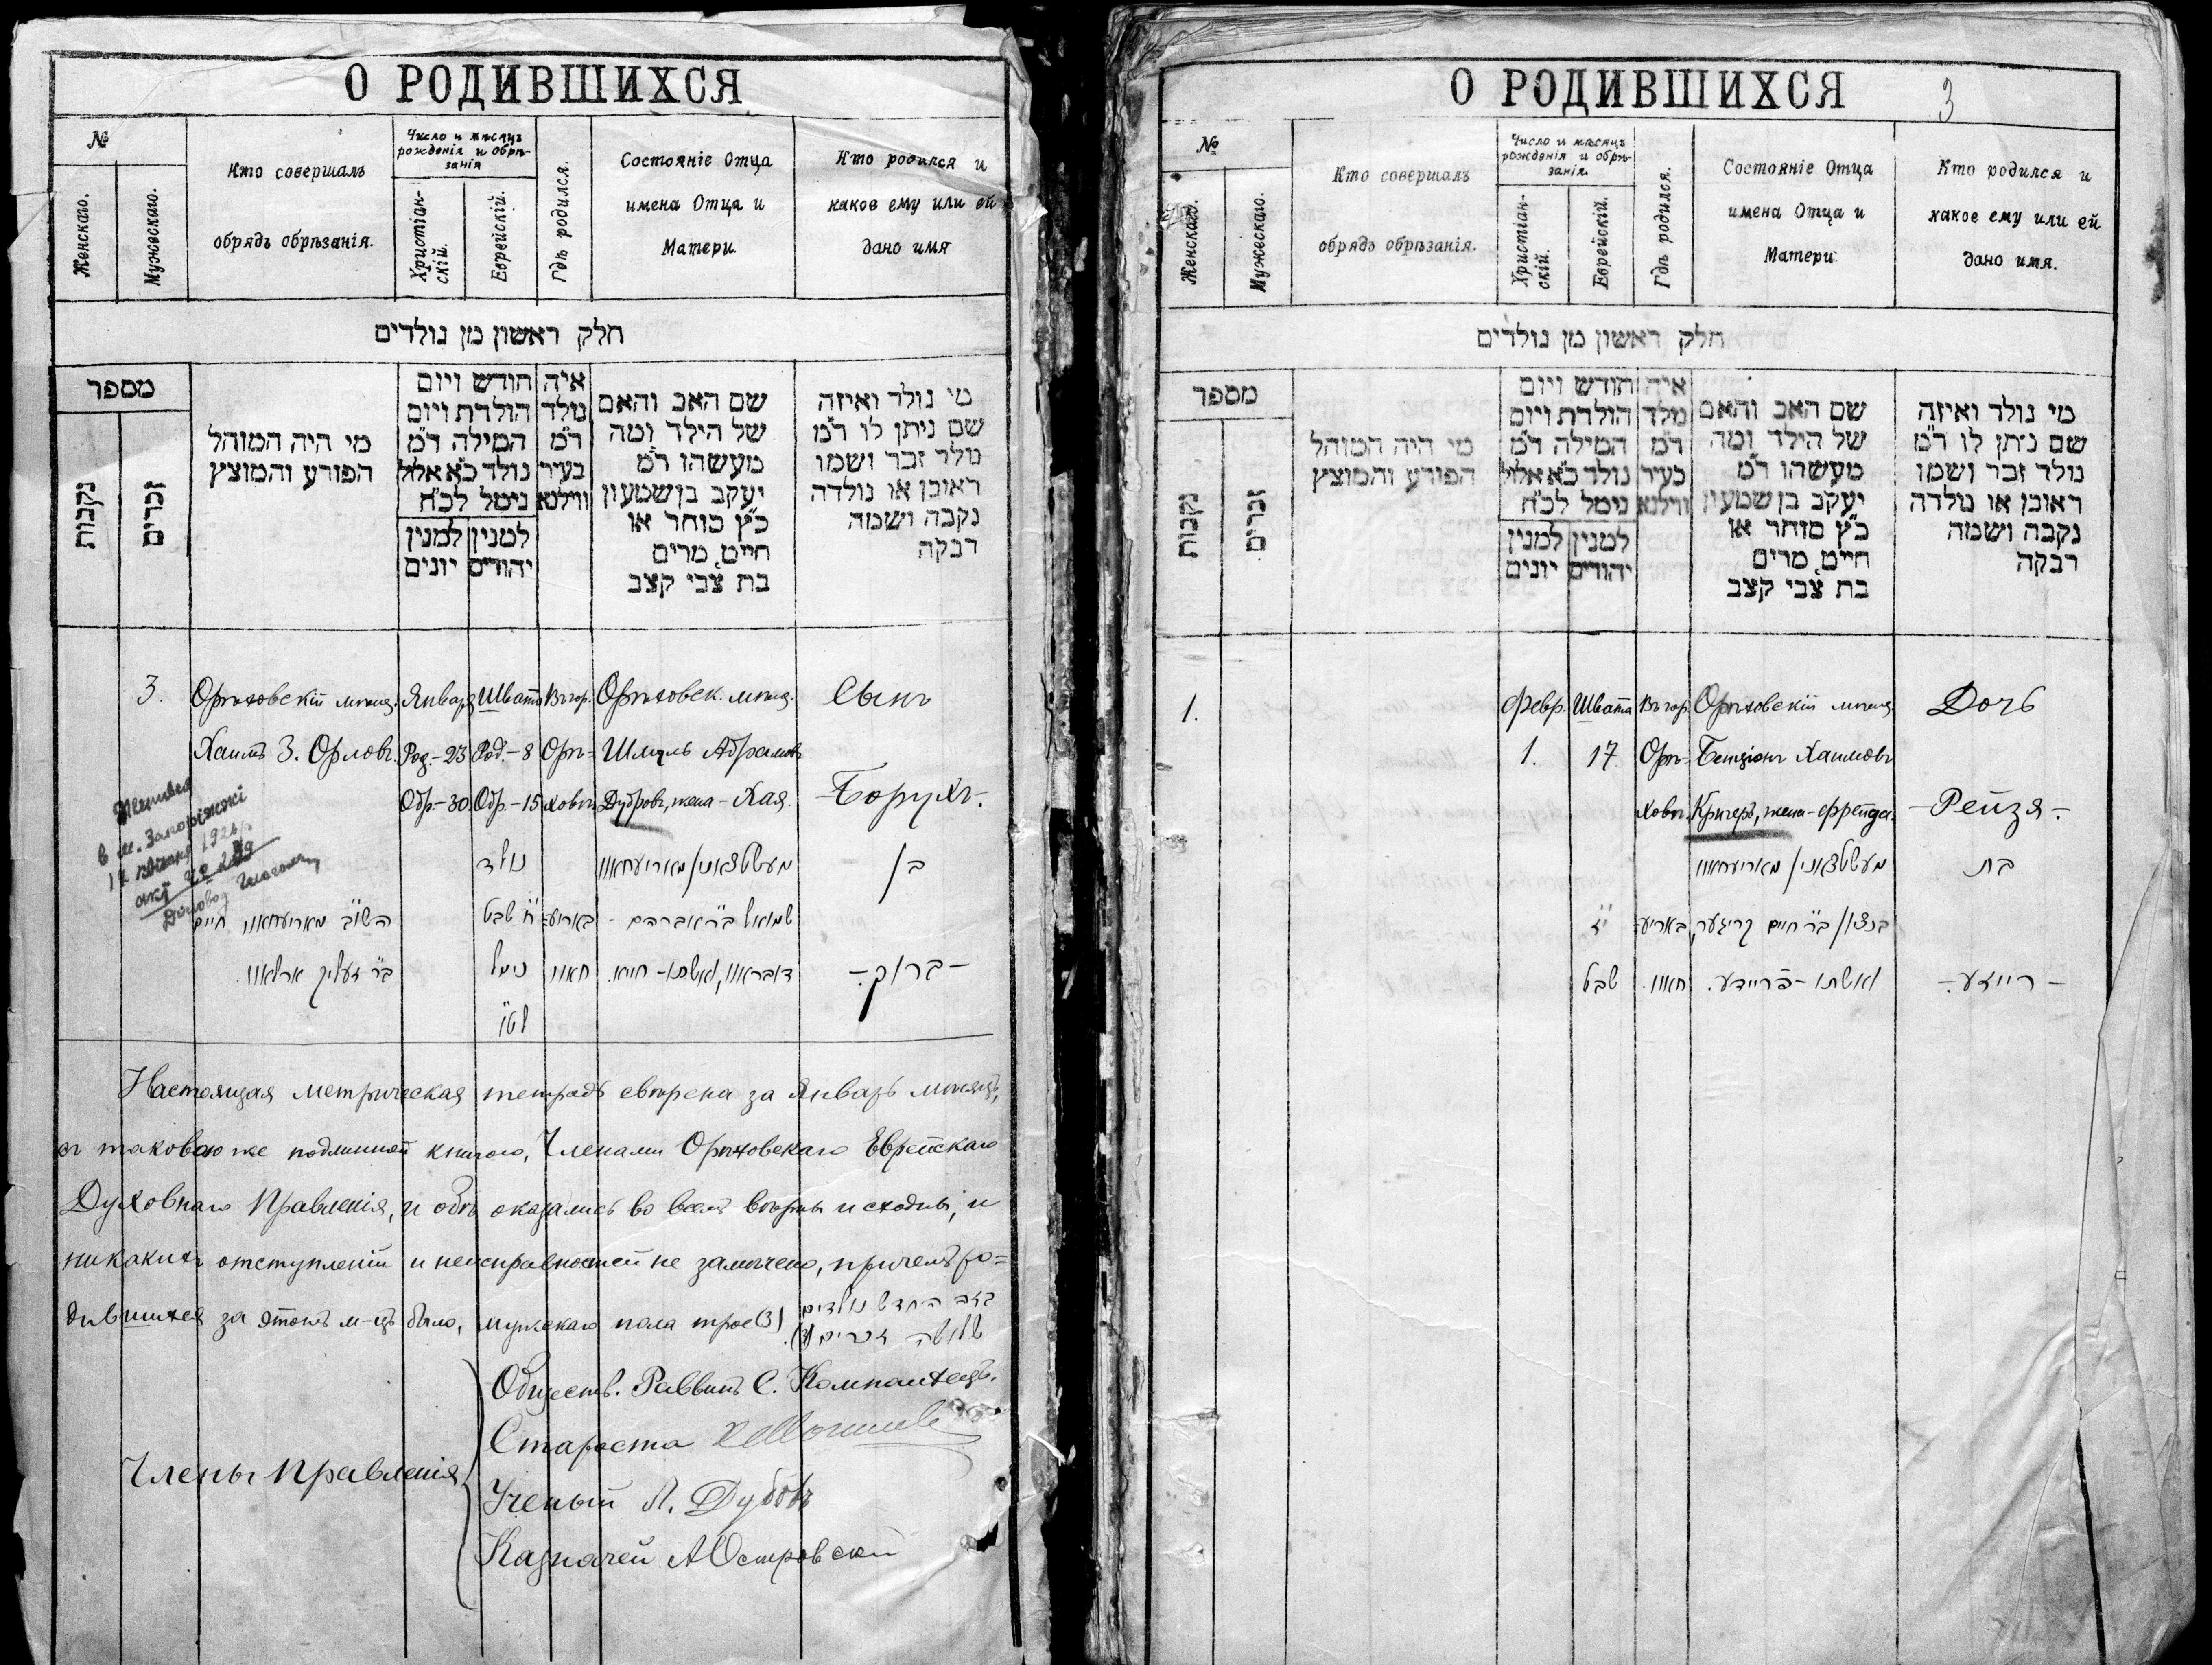 О РОДИВШИХСЯ
№
Женскаго.
Мужескаго.
Кто совершалъ
обрядъ обрѣзанія.
Число и мѣсяцъ
рожденія и обрѣ-
занія
Христіан-
скій.
Еврейскій.
Гдѣ родился.
Состояніе Отца
имена Отца и
Матери
Кто родился и
какое ему или ей
дано имя
חלק ראשון מן נולדים
מספר
נקבות
זכרים
מי היה המוהל
הפורע והמוצץ
חודש ויום
הולדת ויום
המילה ד״מ
נולד כ״א אלול
נימל לכ״ח
למנין למנין
יהודים יונים
איה
נולד
ד״מ
בעיר
ווילנא
שם האב והאם
של הילד ומה
מעשהו ד״מ
יעקב בן שמעון
כ״ץ סוחר או
חייט, מרים
בת צבי קצב
מי נולד ואיזה
שם ניתן לו ד״מ
נולד זכר ושמו
ראובן או נולדה
נקבה ושמה
רבקה
3. Орѣховскій мѣщ. Января Швата Въ гор. Орѣховск. мѣщ. Сынъ
Хаимъ З. Орловъ. Род.-23 Род.-8 Орѣ- Шмуль Абрамовъ
Обр-30 Обр.-15 ховѣ Дубровъ, жена-Хая. -Борухъ.-
в м. Запоріжжі
נולד מעשטצאנין מאריעחאוו בן
השו״ב מאריעחאוו חיים ח׳ שבט באריע- שמואל ב״ר אברהם
ב״ר זעליק ארלאוו נימל חאוו דובראוו, ואשתו- חיא. -ברוך.-
לט״ו
Настоящая метрическая тетрадь свѣрена за Январь мѣсяцъ,
съ таковою же подлинной книгою, Членами Орѣховскаго Еврейскаго
Духовнаго Правленія, и обѣ оказались во всемъ вѣрны и сходны, и
никакихъ отступленій и неисправностей не замѣчено, причемъ ро=
дившихся за этотъ м-цъ было, мужскаго пола трое (3)
בזה החדש נולדים
שלושה זכרים (3).
Члены Правленія
Обществ. Раввинъ С. Компанѣецъ.
Староста
Ученый Л. Дубовъ
Казначей А Островскій
О РОДИВШИХСЯ
3
№
Женскаго.
Мужескаго.
Кто совершалъ
обрядъ обрѣзанія.
Число и мѣсяцъ
рожденія и обрѣ-
занія.
Христіан-
скій.
Еврейскій.
Гдѣ родился.
Состояніе Отца
имена Отца и
Матери
Кто родился и
какое ему или ей
дано имя.
חלק ראשון מן נולדים
מספר
נקבות
זכרים
מי היה המוהל
הפורע והמוצץ
חודש ויום
הולדת ויום
המילה ד״מ
נולד כ״א אלול
נימל לכ״ח
למנין למנין
יהודים יונים
איה
נולד
ד״מ
בעיר
ווילנא
שם האב והאם
של הילד ומה
מעשהו ד״מ
יעקב בן שמעון
כ״ץ סוחר או
חייט, מרים
בת צבי קצב
מי נולד ואיזה
שם ניתן לו ד״מ
נולד זכר ושמו
ראובן או נולדה
נקבה ושמה
רבקה
1. Февр. Швата Въ гор. Орѣховскій мѣщ. Дочь
1. 17. Орѣ- Бенціонъ Хаимовъ
ховѣ. Кригеръ, жена-Фрейда. -Рейзя.-
מעשטצאנין מאריעחאוו בת
י״ז באריע- בנציון ב״ר חיים קריגער,
שבט חאוו. ואשתו - פריידע. -רייזע.-